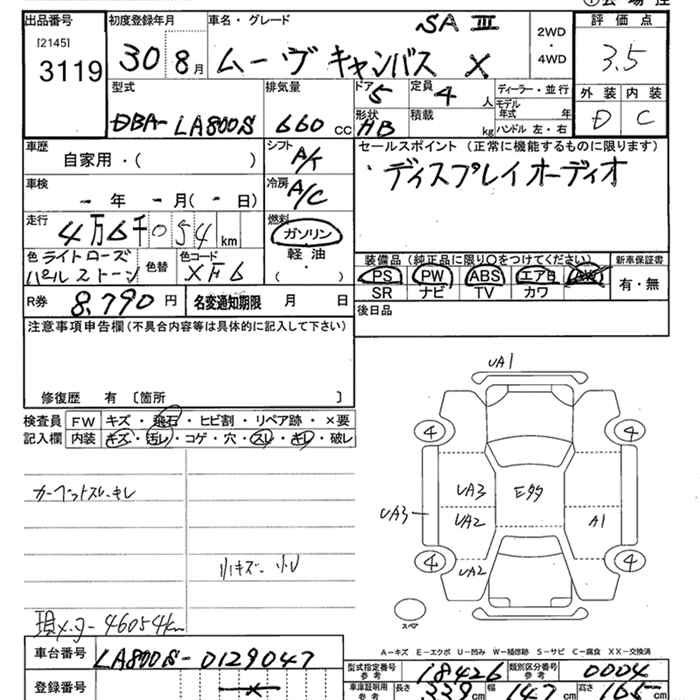 出品番号 初度登録年月 車名・グレード 評価点
[2145] SA Ⅲ 2WD
3119 30 8月 ムーヴ キャンバス X ・ 3.5
4WD
型式 排気量 ドア 5 定員 4 人 ディーラー・並行 外装 内装
DBA-LA800S 660 cc 形状 HB 積載 kg モデル年式 年 D C
ハンドル 左・右
車歴 シフト A/T セールスポイント(正常に機能するものに限ります)
自家用・( ) ディスプレイオーディオ
車検 冷房 A/C
- 年 - 月(-日)
走行 燃料
4万6千054km ガソリン
軽油
・
( )
色 ライトローズ 色替 色コード 装備品(純正品に限り○をつけてください) 新車保証書
パールストーン XF6 PS PW ABS エアB 有・無
SR ナビ TV カワ
R券 8,790円 名変通知期限 月 日 後日品
注意事項申告欄(不具合内容等は具体的に記入して下さい)
修復歴 有 〔箇所 〕
検査員 FW キズ・飛石・ヒビ割・リペア跡・×要
記入欄 内装 キズ・汚レ・コゲ・穴・スレ・キレ・破レ
UA1
4 4
カーペットスレ・キレ
UA3 Eタタ
UA3 UA2 A1
小キズ 小U
4 UA2 4
スペア
現メーター46054km
A-キズ E-エクボ U-凹み W-補修跡 S-サビ C-腐食 XX-交換済
車台番号 LA800S-0129047
型式指定番号 参考 18426 類別区分番号 参考 0004
登録番号
車庫証明用 参考 長さ 339cm 幅 147cm 高さ 165cm